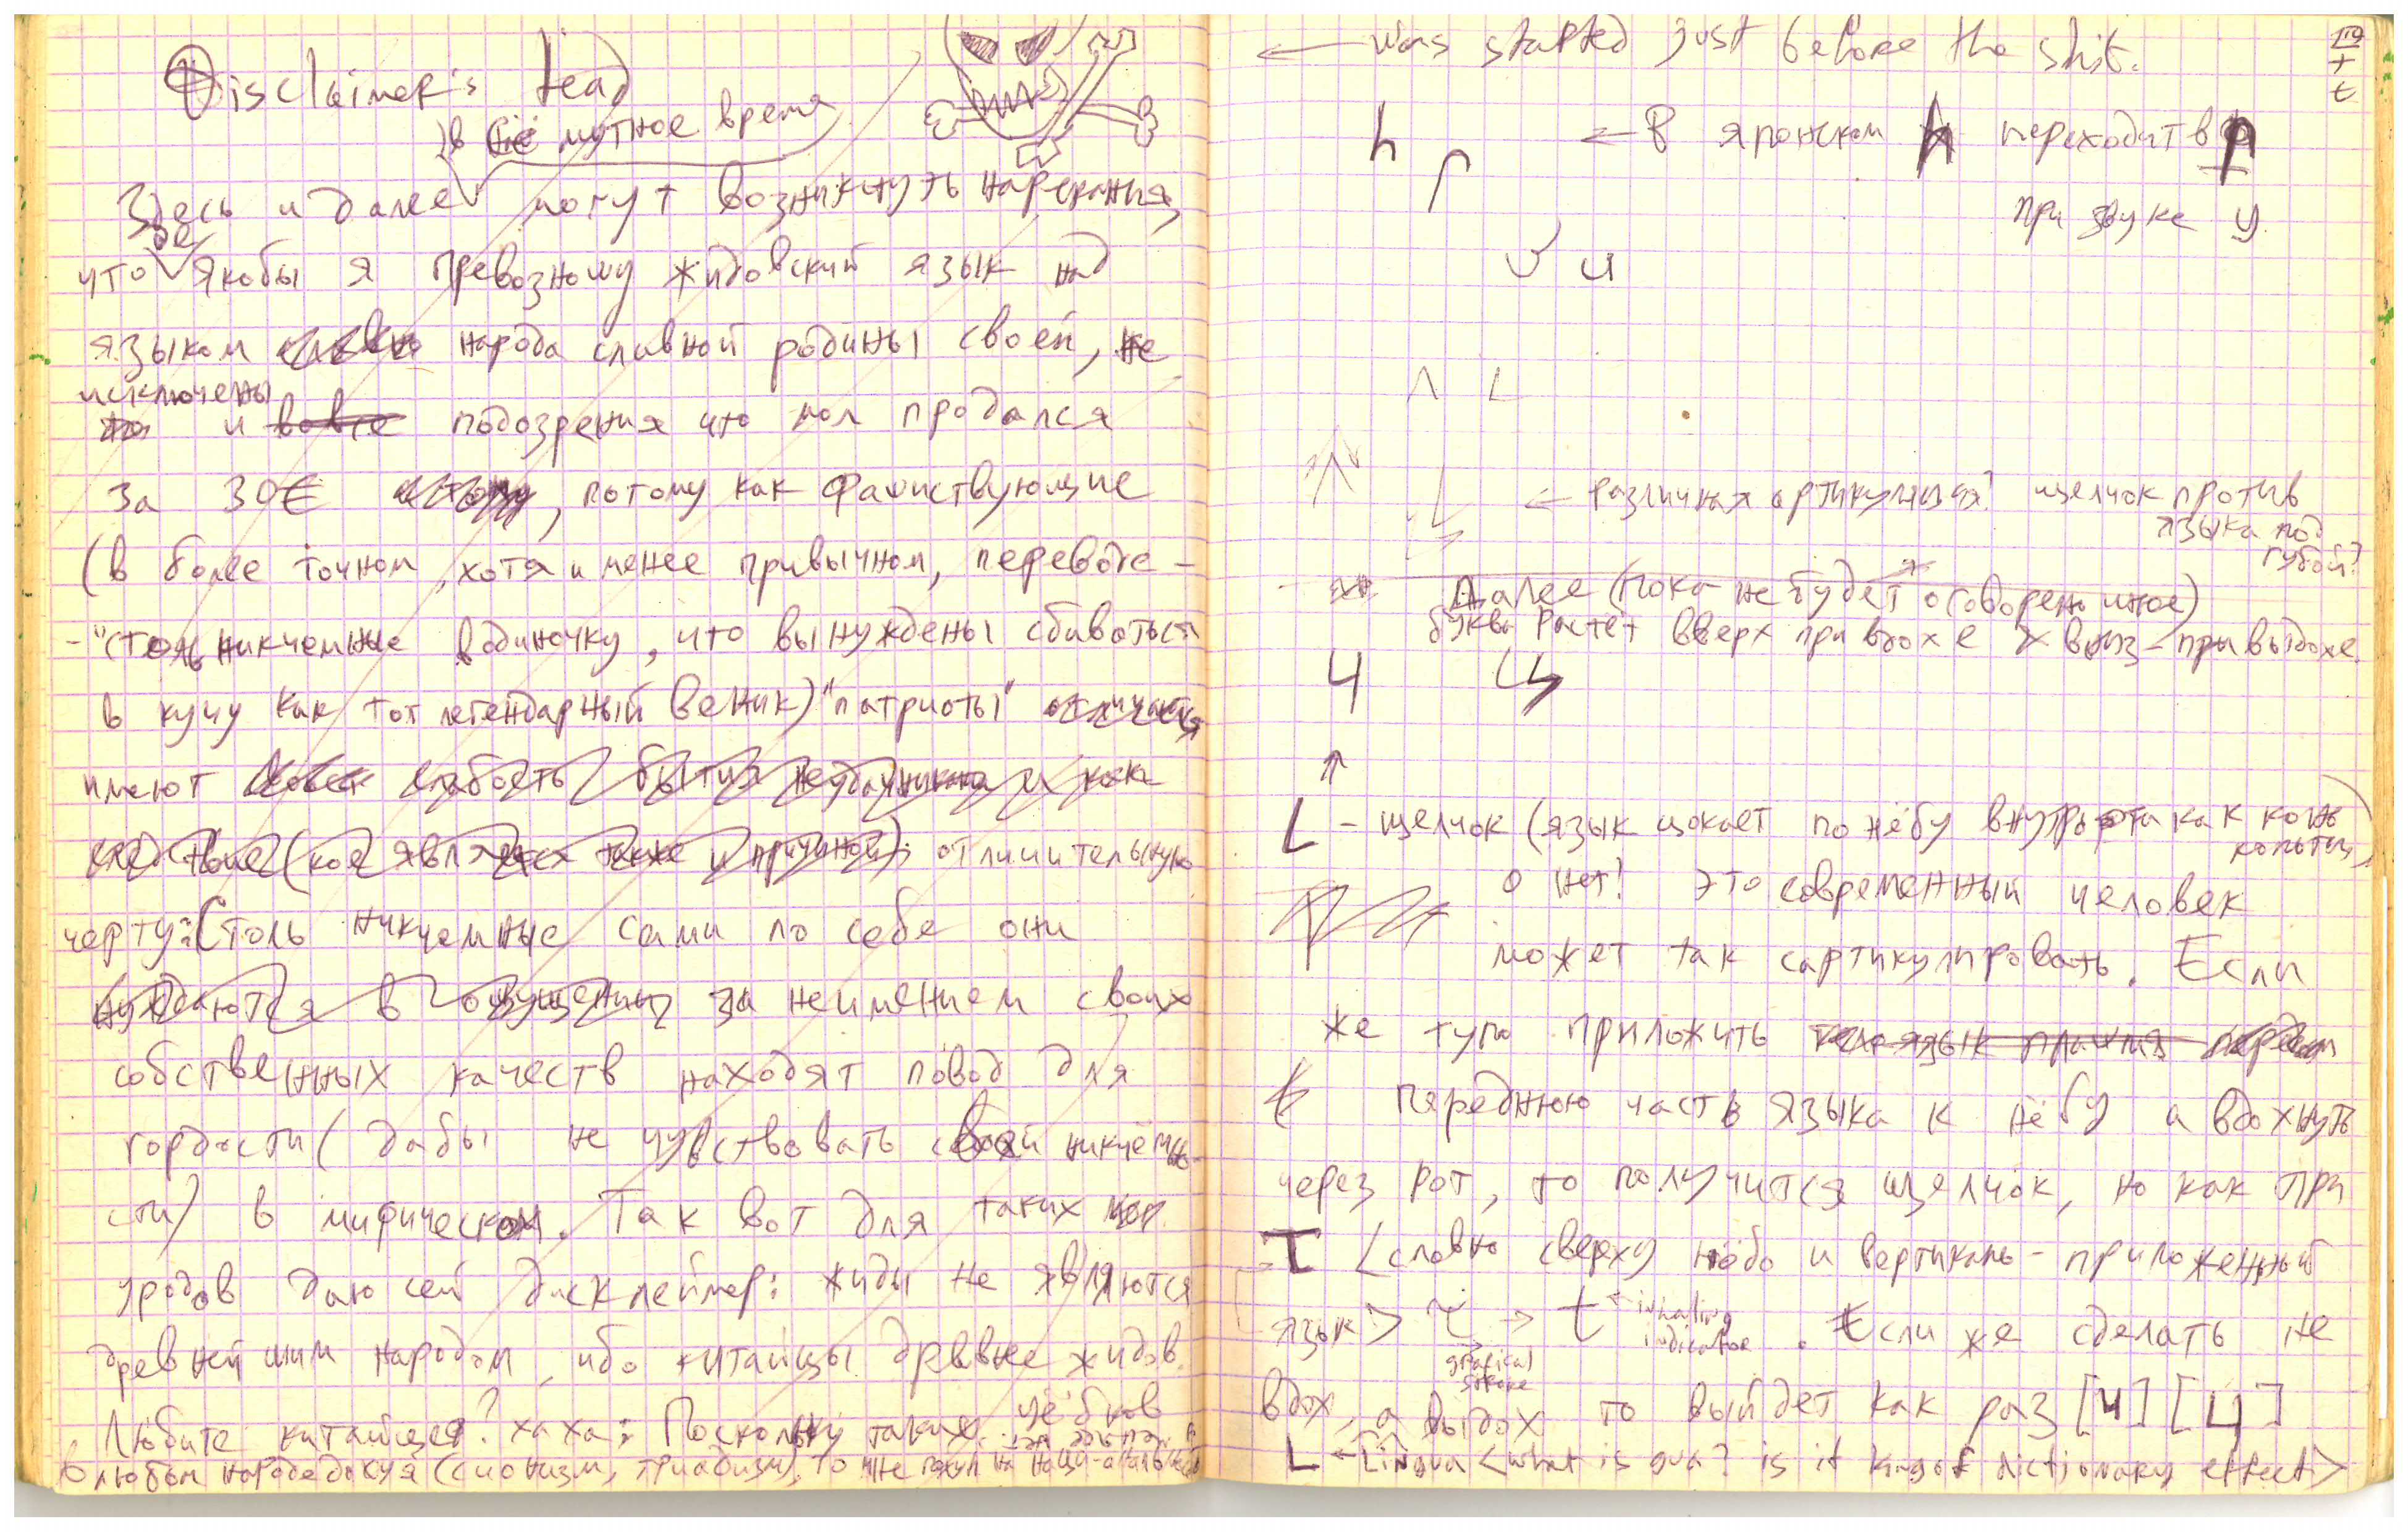 Disclaimer's head
в сие мутное время
Здесь и далее могут возникнуть нарекания,
что якобы я превозношу жидовский язык над
языком народа славной родины своей, не
исключены
и вовсе подозрения что мол продался
за 30€ , потому как фашиствующие
(в более точном, хотя и менее привычном, переводе -
- "столь никчемные в одиночку, что вынуждены сбиваться
в кучу как тот легендарный веник) "патриоты"
имеют слабость бытия неудачника и как
следствие (кое является также и причиной) отличительную
черту: Столь никчемные сами по себе они
нуждаются в ощущении за неимением своих
собственных качеств находят повод для
гордости (дабы не чувствовать своей никчёмно-
сти) в мифическом. Так вот для таких
уродов даю сей дисклеймер: жиды не являются
древнейшим народом, ибо китайцы древнее жидов.
Любите китайцев? хаха: Поскольку таких
в любом народе дохуя (сионизм, триадизм), то мне похуй на
← was started just before the shit.
h ← в японском h переходит в p
при звуке у
и
Λ L
← различная артикуляция? щелчок против
языка под
губой?
Далее (пока не будет оговорено иное)
буква растёт вверх при вдохе и вниз - при выдохе.
Ч Ц
↑
L - щелчок (язык цокает по нёбу внутри рта как конь
копытц)
о нет! это современный человек
может так сартикулировать. Если
же тупо приложить
переднюю часть языка к нёбу и вдохнуть
через рот, то получится щелчок, но как при
T <словно сверху нёбо и вертикаль - приложенный
язык> τ → t ← inhaling
indicator . Если же сделать не
grafical
вдох, а выдох то выйдет как раз [ч] [ц]
L ← Lingua <what is gua? is it king of dictionary effect>